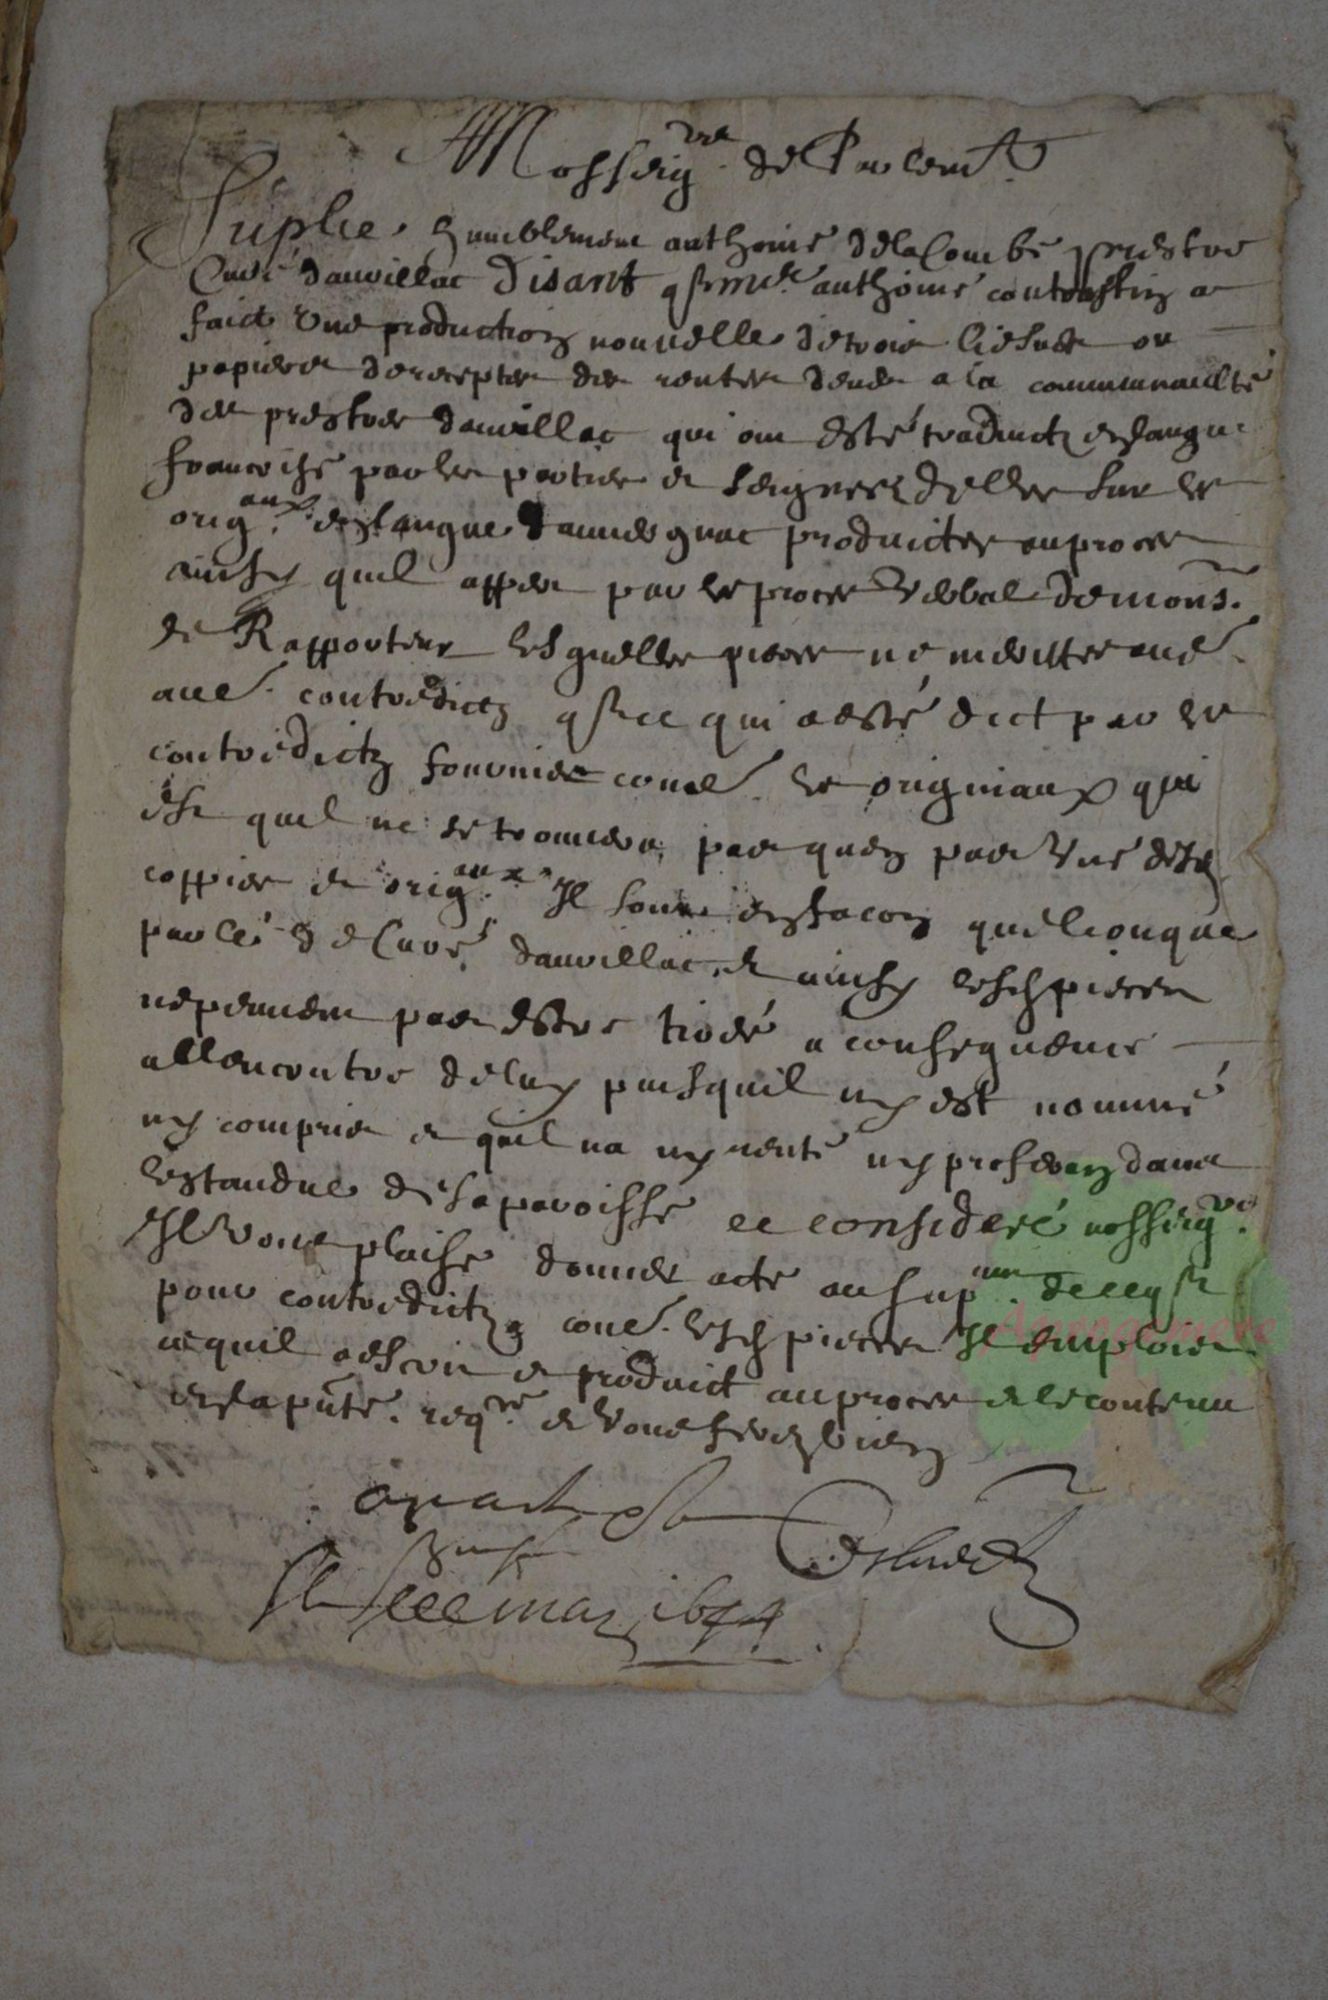 A Nosseigrs de Parlemt
Suplie humblement anthoine delacombe prestre
Curé dauvillac Disant q me anthoine contrastin a
faict une production nouvelle de trois liesves ou
papiers de receptes des rentes deues a la communaulté
des prestres dauvillac qui ont esté traduictz en langue
francoise par les parties et seignees delles sur les
origaux en langue dauvergnac produictes au proces
ainsy quil appert par le proces verbal de mons.
le Rapporteur lesquelles pieces ne meritte aue.
aue. contredictz q ce qui a esté dict par les
contredictz fournies cone. les originaux qui
est quil ne se trouvera pas quen pas une desd
coppies et origaux Il soit en facon quelconque
parlé dud Curé dauvillac et ainsy lesd pieces
ne peuvent pas estre tiré a consequence
allencontre de luy puisquil ny est nommé
ny compris et quil na ny rente ny possession dans
lestandue de sa paroisse ce consideré nosseigrs
Il vous plaise donner acte au supnt de ce q
pour contredictz cone. lesd pieces Il emploie
ce quil a escrit et produict au proces et le contenu
en sa pnte. reqte et vous ferez bien
ay acte
le mars 1644.